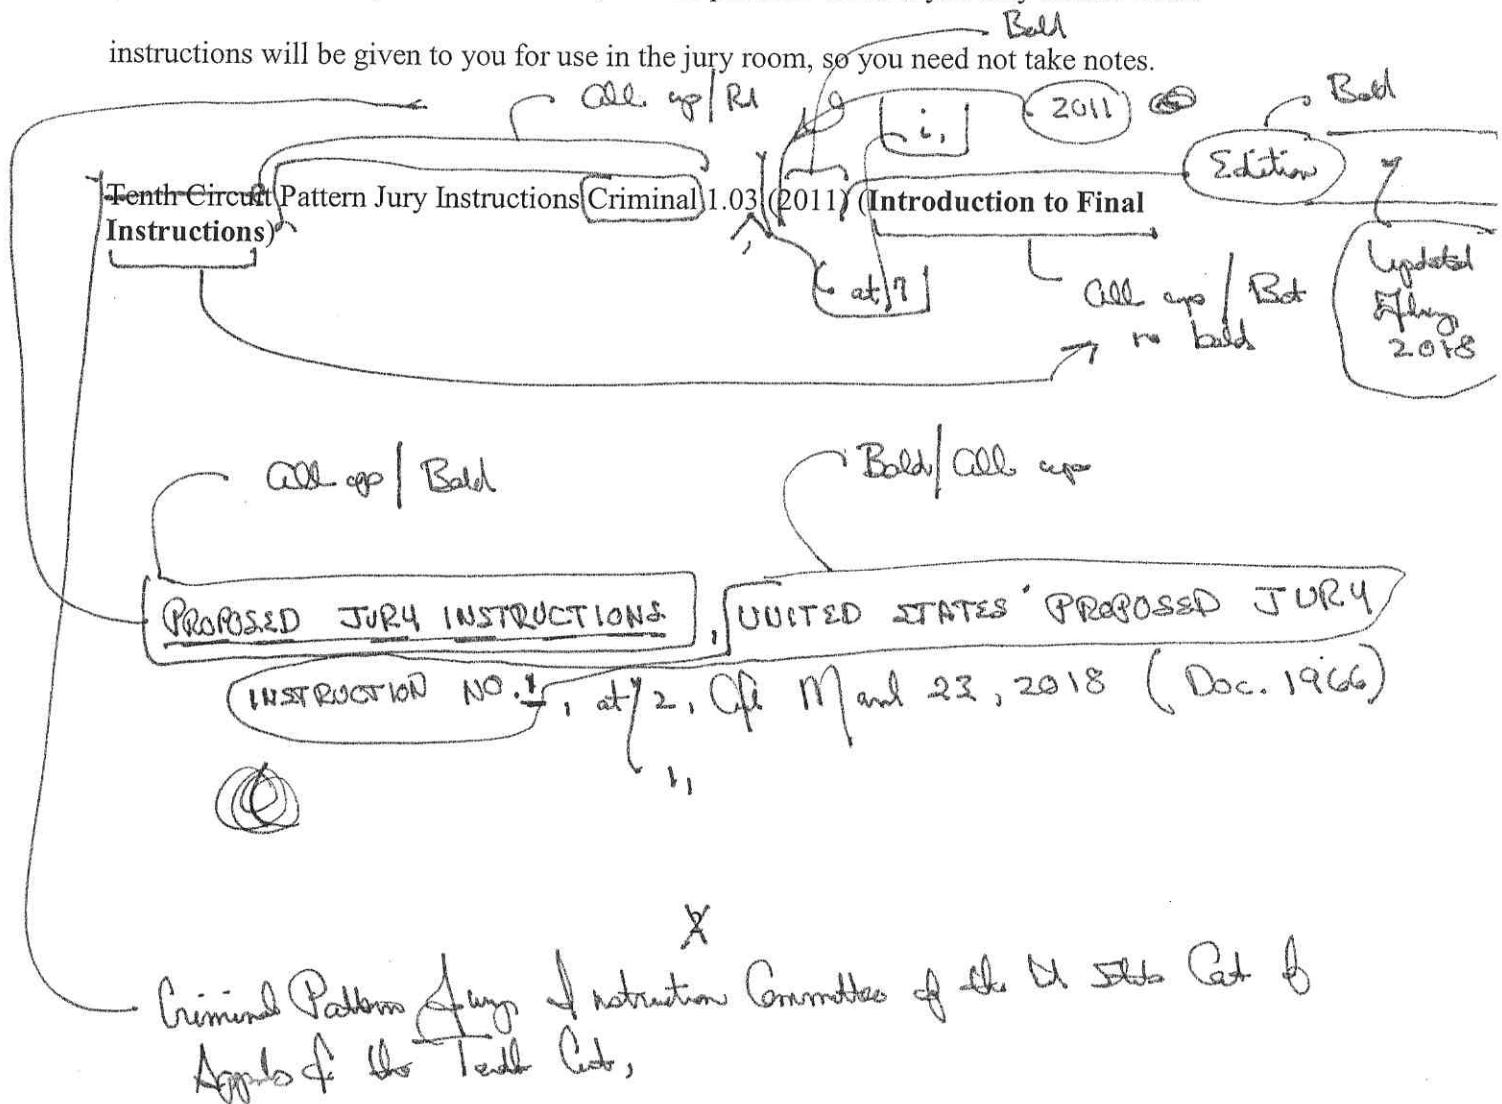 instructions will be given to you for use in the jury room, so you need not take notes.
Bold
All cap/
2011
i,
Bold
Edition
Tenth Circuit Pattern Jury Instructions Criminal 1.03 (2011) (Introduction to Final
Instructions)
,
at 7
All cap/
no bold
Updated
2018
All cap/Bold
Bold/All cap
PROPOSED JURY INSTRUCTIONS, UNITED STATES' PROPOSED JURY
INSTRUCTION NO. 1, at 2, 23, 2018 (Doc. 1966)
1,
Criminal Pattern Jury Instruction Committee of the of
of the Tenth